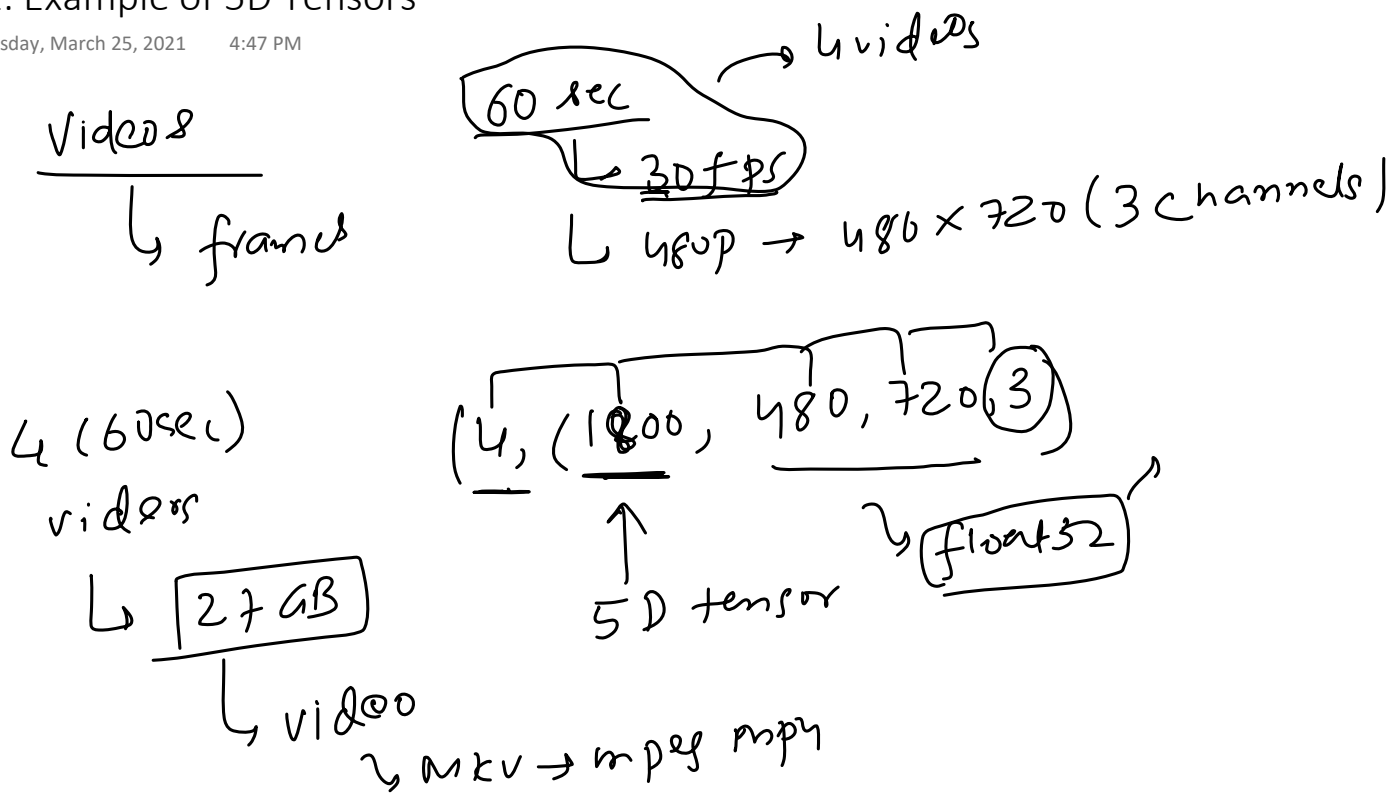 Example of 5D Tensors
sday, March 25, 2021 4:47 PM
Videos
↳ frames
60 sec → 4 videos
↳ 30 fps
↳ 480p → 480 × 720 (3 channels)
4 (60sec)
videos
↳ 27 GB
↳ video
↘ mkv → mpeg
(4, (1800, 480, 720, 3)
↑
5D tensor
↘ float32